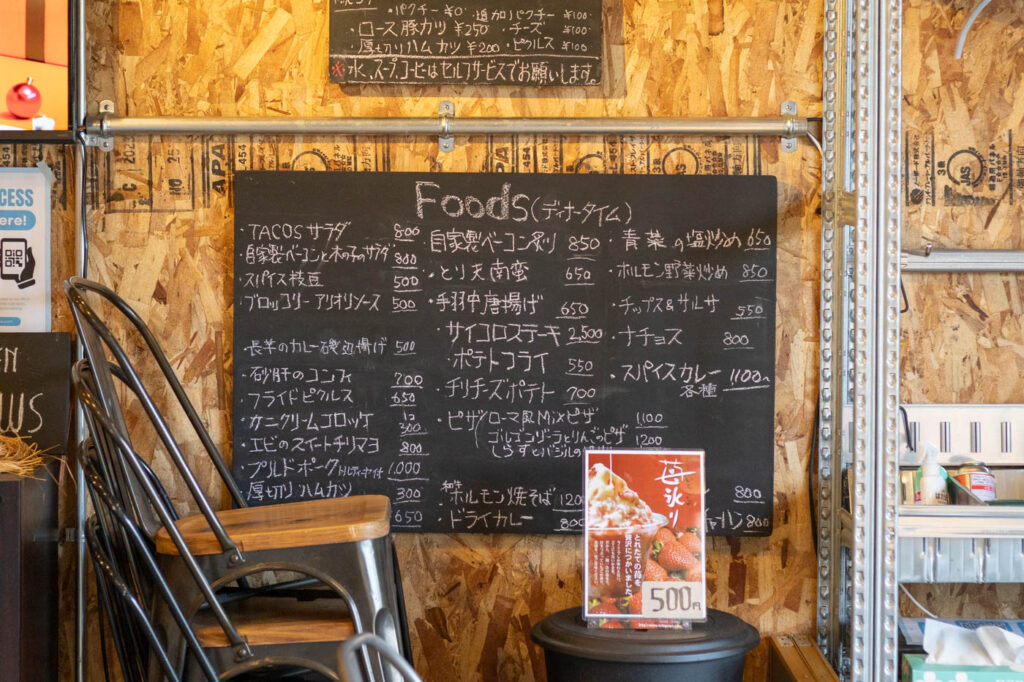 ・パクチー ¥0 ・追加パクチー ¥100
・ロース豚カツ ¥250 ・チーズ ¥100
・厚切りハムカツ ¥200 ・ピクルス ¥100
※水、スープ、コーヒーはセルフサービスでお願いします。
CESS
ere!
EN
WS
APA
Foods(ディナータイム)
・TACOS サラダ 800
自家製ベーコンと木の子のサラダ 800
・スパイス枝豆 500
・ブロッコリーアリオリソース 500
・長芋のカレー磯辺揚げ 500
・砂肝のコンフィ 700
・フライドピクルス 650
・カニクリームコロッケ 300
・エビのスイートチリマヨ 800
・プルドポーク トルティーヤ付 1,000
・厚切りハムカツ 300
650
自家製ベーコン炙り 850
・とり天南蛮 650
・手羽中唐揚げ 650
サイコロステーキ 2,500
・ポテトフライ 550
・チリチーズポテト 700
・ピザ ローマ風Mixピザ 1,100
ゴルゴンゾーラとりんごのピザ 1200
しらすとバジルの
・ホルモン焼そば 1200
・ドライカレー 800
・青菜の塩炒め 650
・ホルモン野菜炒め 850
・チップス&サルサ 550
・ナチョス 800
・スパイスカレー 各種 1100〜
800
チャーハン 800
苺氷り
とれたての苺を
贅沢につかいました。
500円